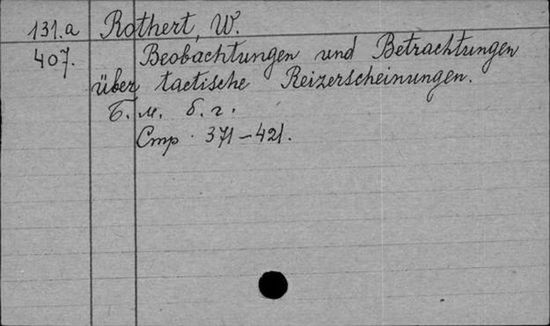 131.a Rothert, W.
407. Beobachtungen und Betrachtungen
über tactische Reizerscheinungen.
Б. м. б. г.
Стр. 371-421.